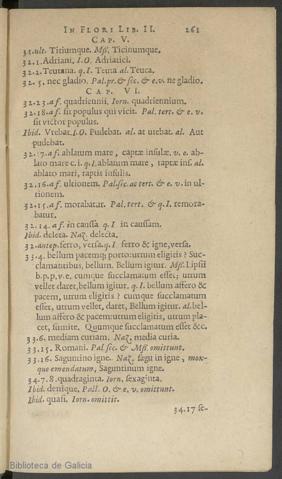 IN FLORI LIB. II. 261
CAP. V.
31.ult. Titiumque. Mss. Ticinumque.
32.1. Adriani, I.O. Adriatici.
32.2. Teutana. q.I. Teuta al. Teuca.
32.5. nec gladio. Pal.pr.& sec. & e.v. ne gladio.
CAP. VI.
32.23.af. quadriennii, Iorn. quadriennium.
32.18.af. sit populus qui vicit. Pal. tert. & e.v.
sit victor populus.
Ibid. Vtebat. I.O. Pudebat. al. at utebat. al. Aut
pudebat.
32.17.af. ablatum mare, captæ insulæ. v.e. ab-
lato mare c.i. q.I. ablatum mare, raptæ ins. al.
ablato mari, raptis insulis.
32.16.af. ultionem. Pal.sec. ac tert. & e.v. in ul-
tionem.
32.15.af. morabatur. Pal. tert. & q.I. remora-
batur.
32.14.af. in caussa. q.I in caussam.
Ibid. deleta. Naz. delecta.
32.antep. ferro, versa. q.I. ferro & igne, versa.
33.4. bellum pacemq; porto: utrum eligitis? Suc-
clamantibus, bellum. Bellum igitur. Mss. Lipsii
b.p.p.v.e. cumque succlamatum esset; utrum
vellet daret, bellum igitur. q.I. bellum affero &
pacem, utrum eligitis? cumque succlamatum
esset, utrum vellet, daret, Bellum igitur. al. bel-
lum affero & pacem: utrum eligitis, utrum pla-
cet, sumite. Quumque succlamatum esset &c.
33.6. mediam curiam. Naz. media curia.
33.15. Romani. Pal sec. & Mss. omittunt.
33.16. Saguntino igne. Naz. sagut in igne, mox-
que emendatum, Saguntinum igne.
34.7.8. quadraginta. Iorn. sexaginta.
Ibid. denique, Poll. O. & e.v. omittunt.
Ibid. quasi. Iorn. omittit.
34.17 se-
Biblioteca de Galicia